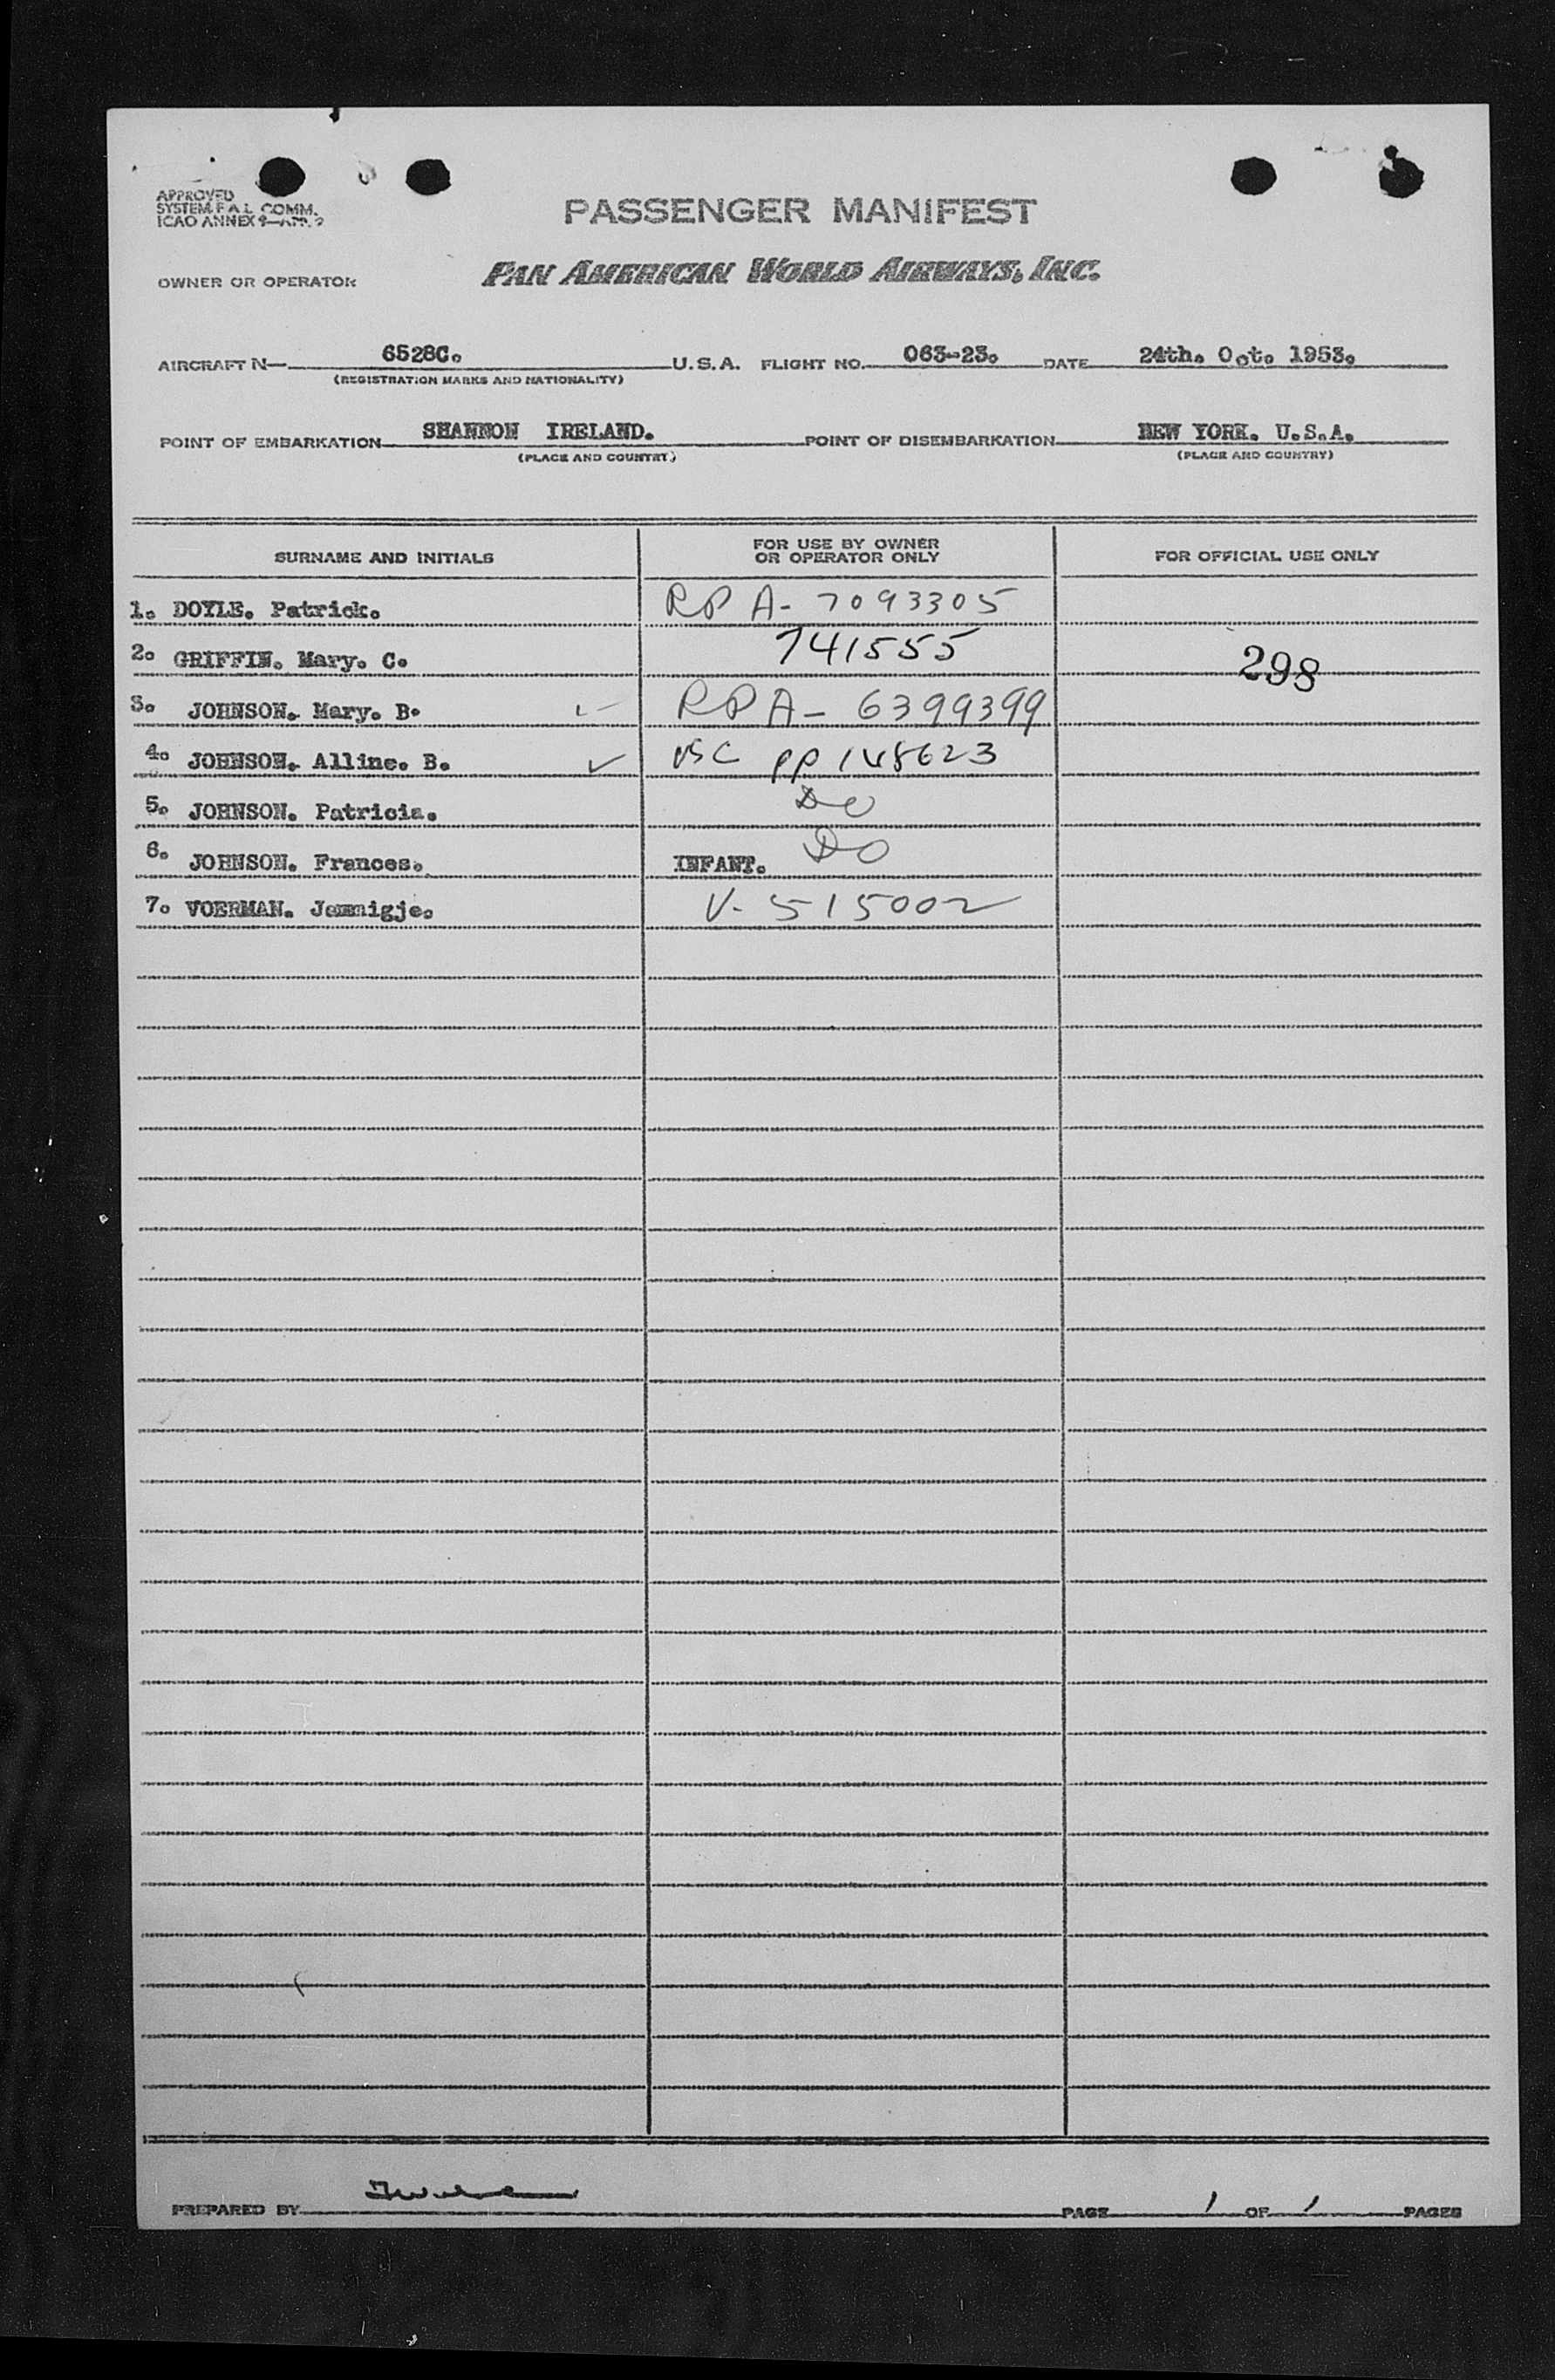 APPROVED
SYSTEM F.A.L. COMM.
ICAO ANNEX 9—APP. 2
PASSENGER MANIFEST
OWNER OR OPERATOR PAN AMERICAN WORLD AIRWAYS, INC.
AIRCRAFT N— 6528C. U.S.A. FLIGHT NO. 063-23. DATE 24th. Oct. 1953.
(REGISTRATION MARKS AND NATIONALITY)
POINT OF EMBARKATION SHANNON IRELAND. POINT OF DISEMBARKATION NEW YORK. U.S.A.
(PLACE AND COUNTRY) (PLACE AND COUNTRY)
SURNAME AND INITIALS FOR USE BY OWNER OR OPERATOR ONLY FOR OFFICIAL USE ONLY
1. DOYLE. Patrick. RP A- 7093305
2. GRIFFIN. Mary. C. 741555 298
3. JOHNSON. Mary. B. RP A- 6399399
4. JOHNSON. Alline. B. ✓ USC PP 148623
5. JOHNSON. Patricia. DO
6. JOHNSON. Frances. INFANT. DO
7. VOERMAN. Jemmigje. V- 515002
PREPARED BY PAGE 1 OF 1 PAGES